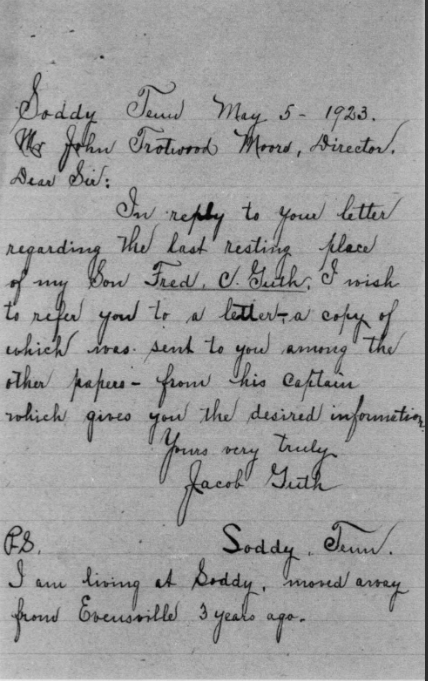 Soddy Tenn May 5 - 1923.
Mr John Trotwood Moore, Director.
Dear Sir:
In reply to your letter
regarding the last resting place
of my Son Fred. C. Guth, I wish
to refer you to a letter - a copy of
which was sent to you among the
other papers - from his Captain
which gives you the desired information.
Yours very truly
Jacob Guth
P.S. Soddy, Tenn.
I am living at Soddy, moved away
from Evensville 3 years ago.